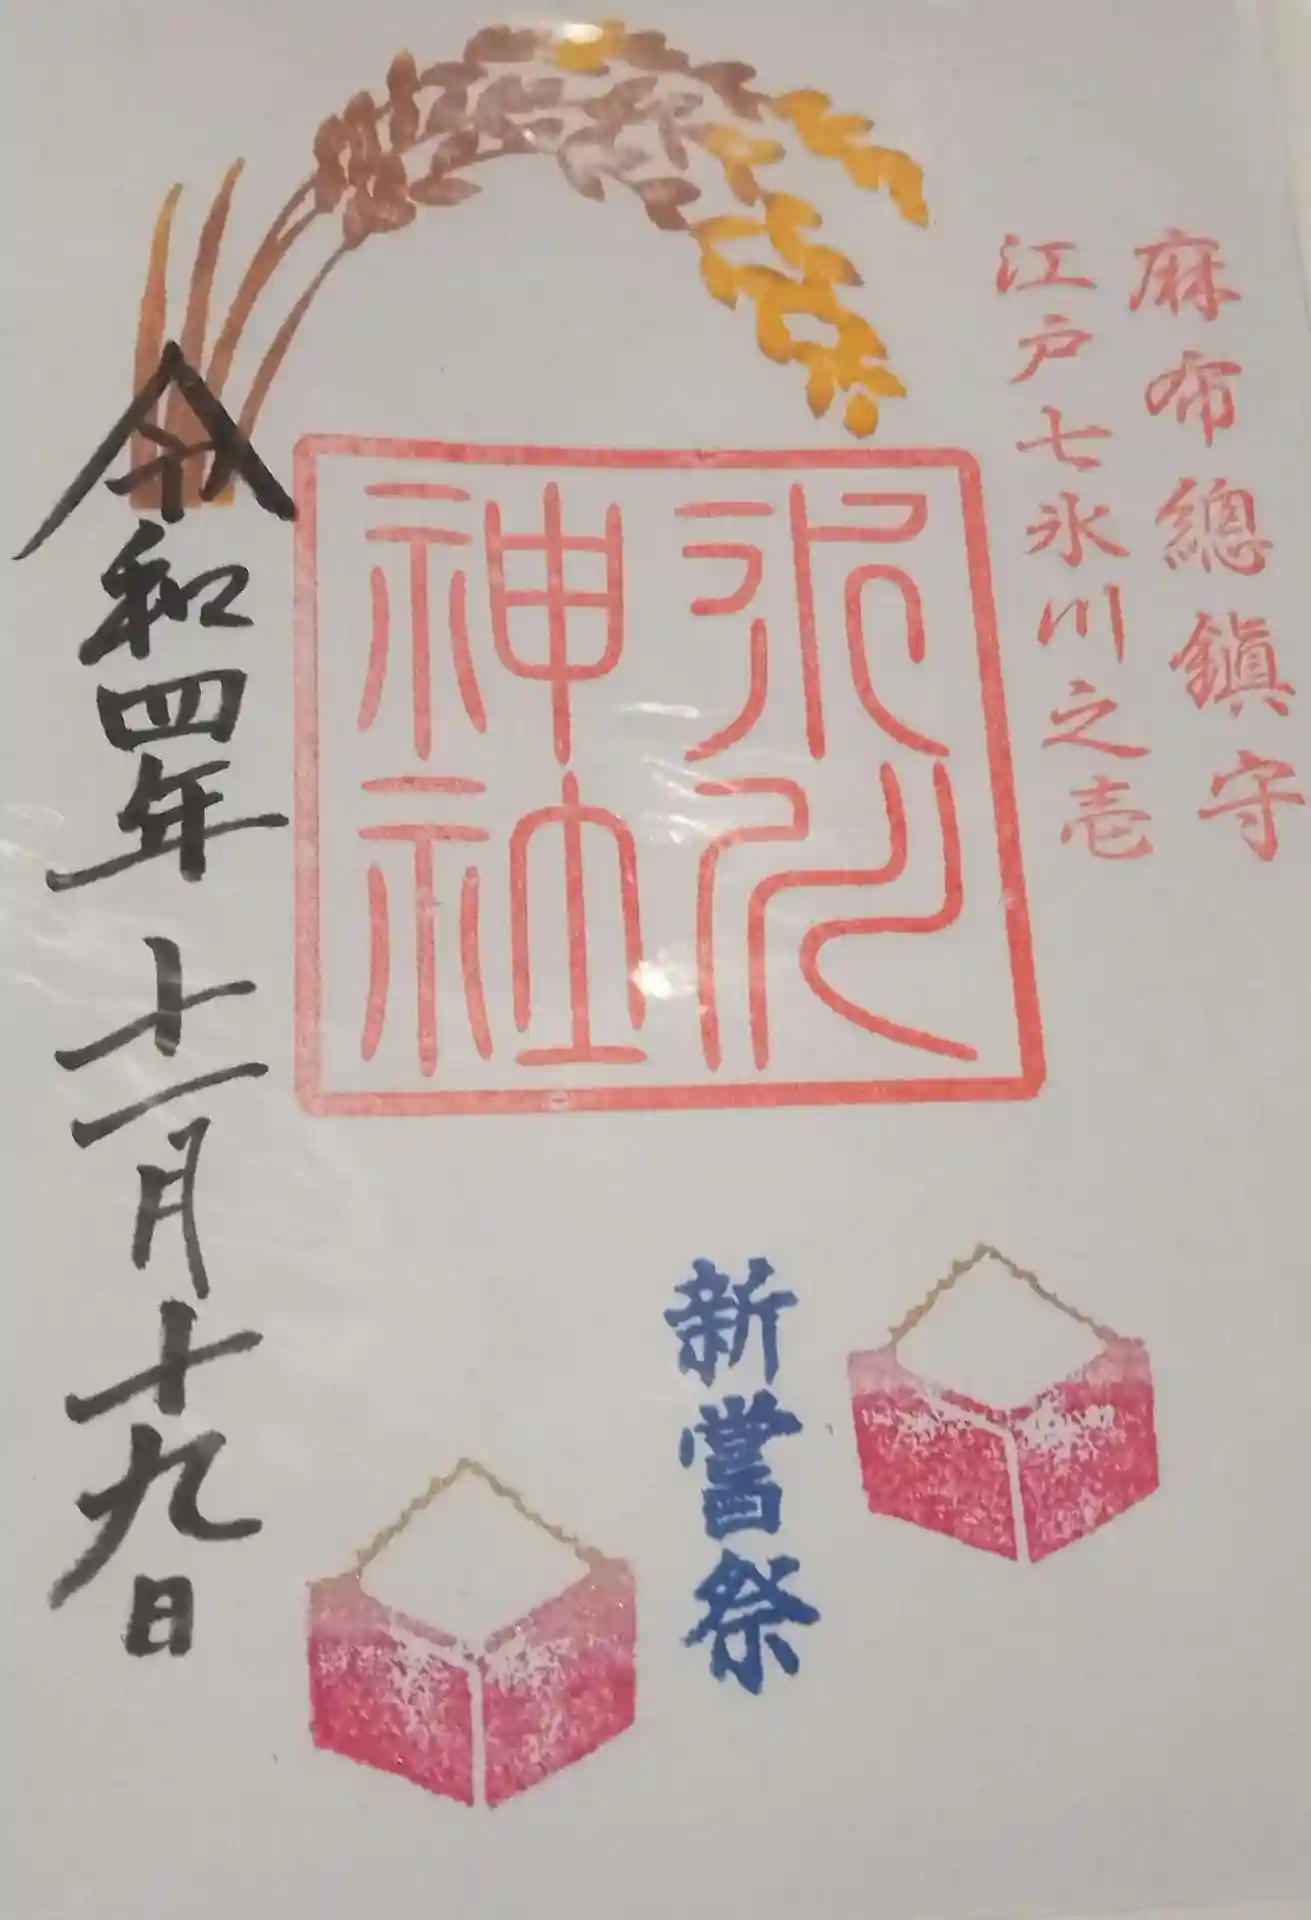 麻布總鎭守
江戸七氷川之壱
氷川
神社
新嘗祭
令和四年十一月十九日